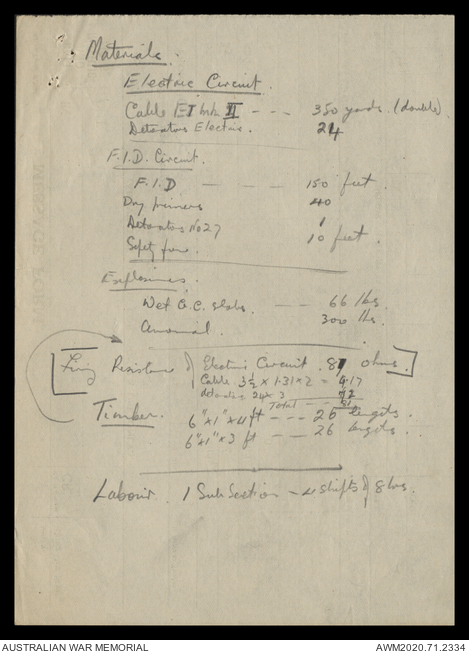 Materials.
Electric Circuit.
Cable E I mk II --- 350 yards (double)
Detonators Electric. 24
F.I.D. Circuit.
F.I.D --- 150 feet.
Dry primers 40
Detonators No 27 1
Safety fuse. 10 feet.
Explosives.
Wet G.C. slabs. --- 66 lbs.
Ammonal. 300 lbs.
Firing Resistance of Electric Circuit. 81 ohms.
Cable 3½ × 1.31 × 2 = 9.17
detonators 24 × 3 72
Total --- 81
Timber. 6" × 1" × 4 ft --- 26 lengths.
6" × 1" × 3 ft --- 26 lengths.
Labour. 1 Sub Section - 4 shifts of 8 hrs.
MESSAGE FORM
AUSTRALIAN WAR MEMORIAL
AWM2020.71.2334